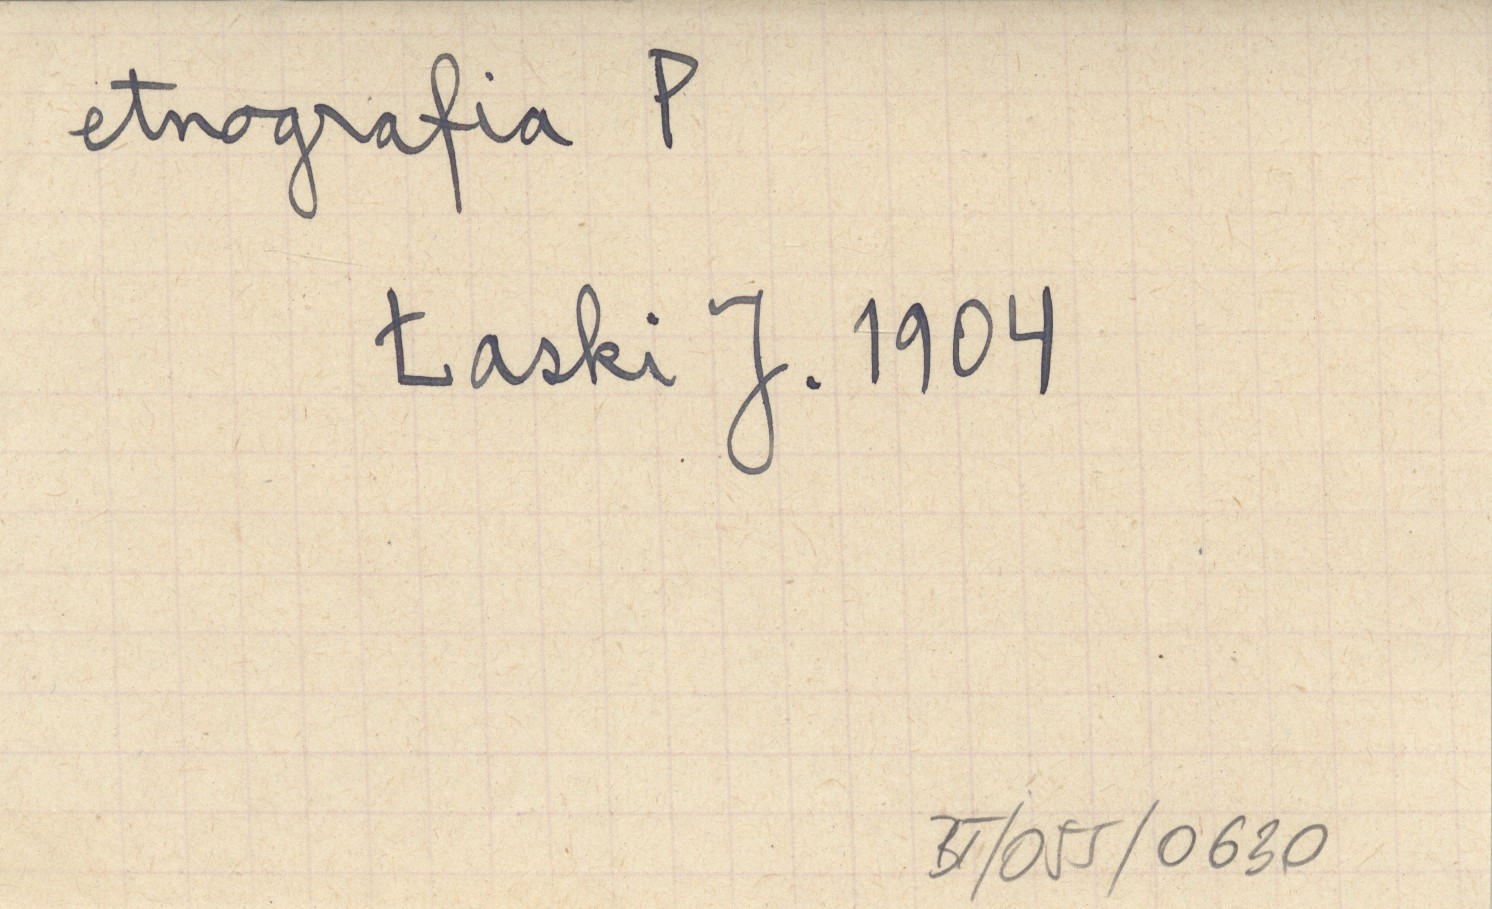 etnografia P
Łaski J. 1904
/055/0630